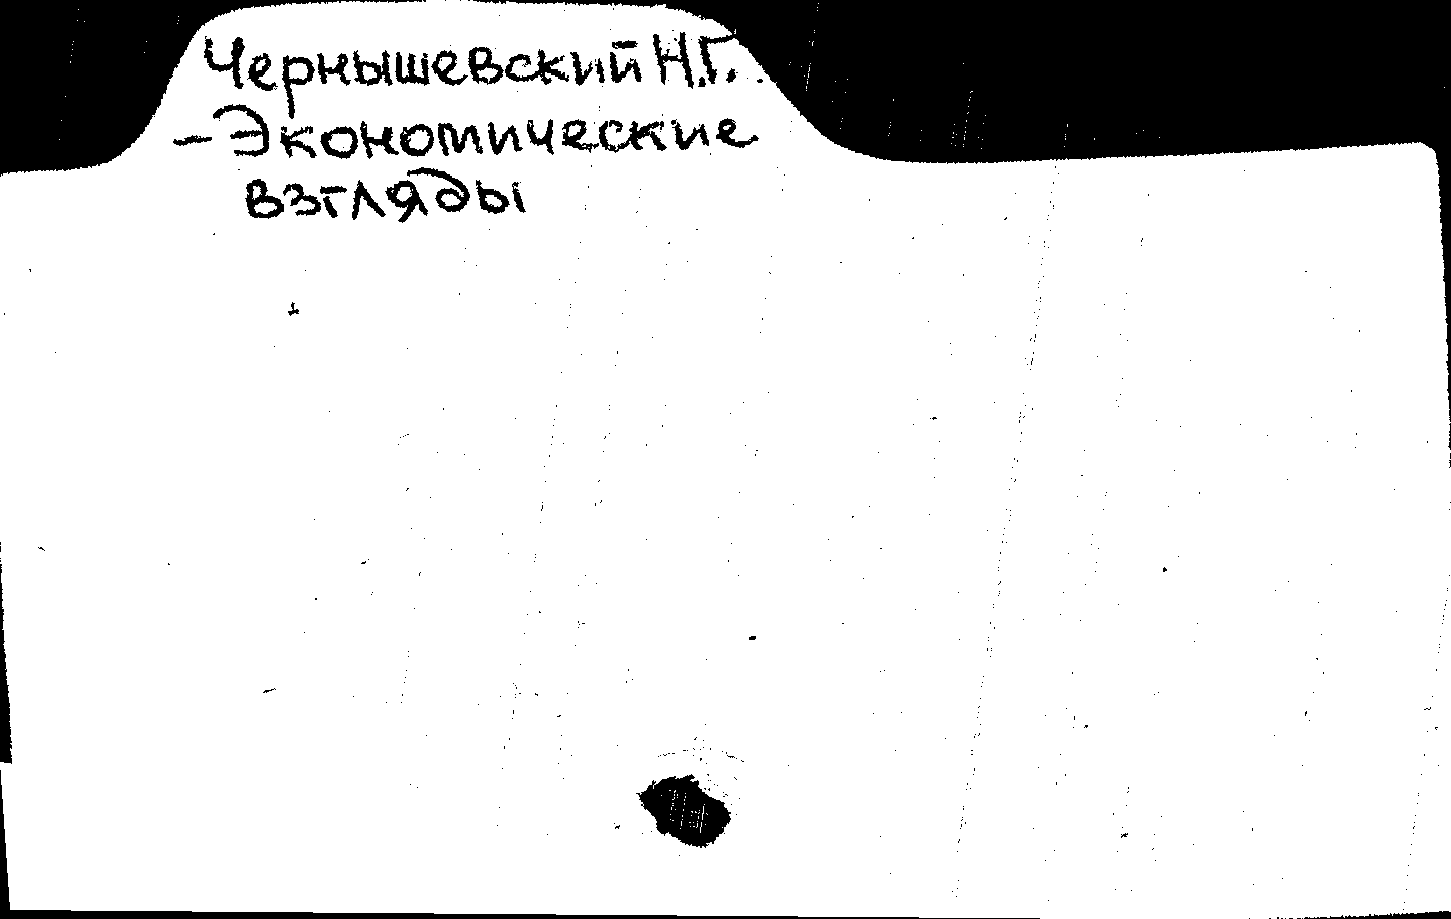 Чернышевский Н.Г.
— Экономические
взгляды